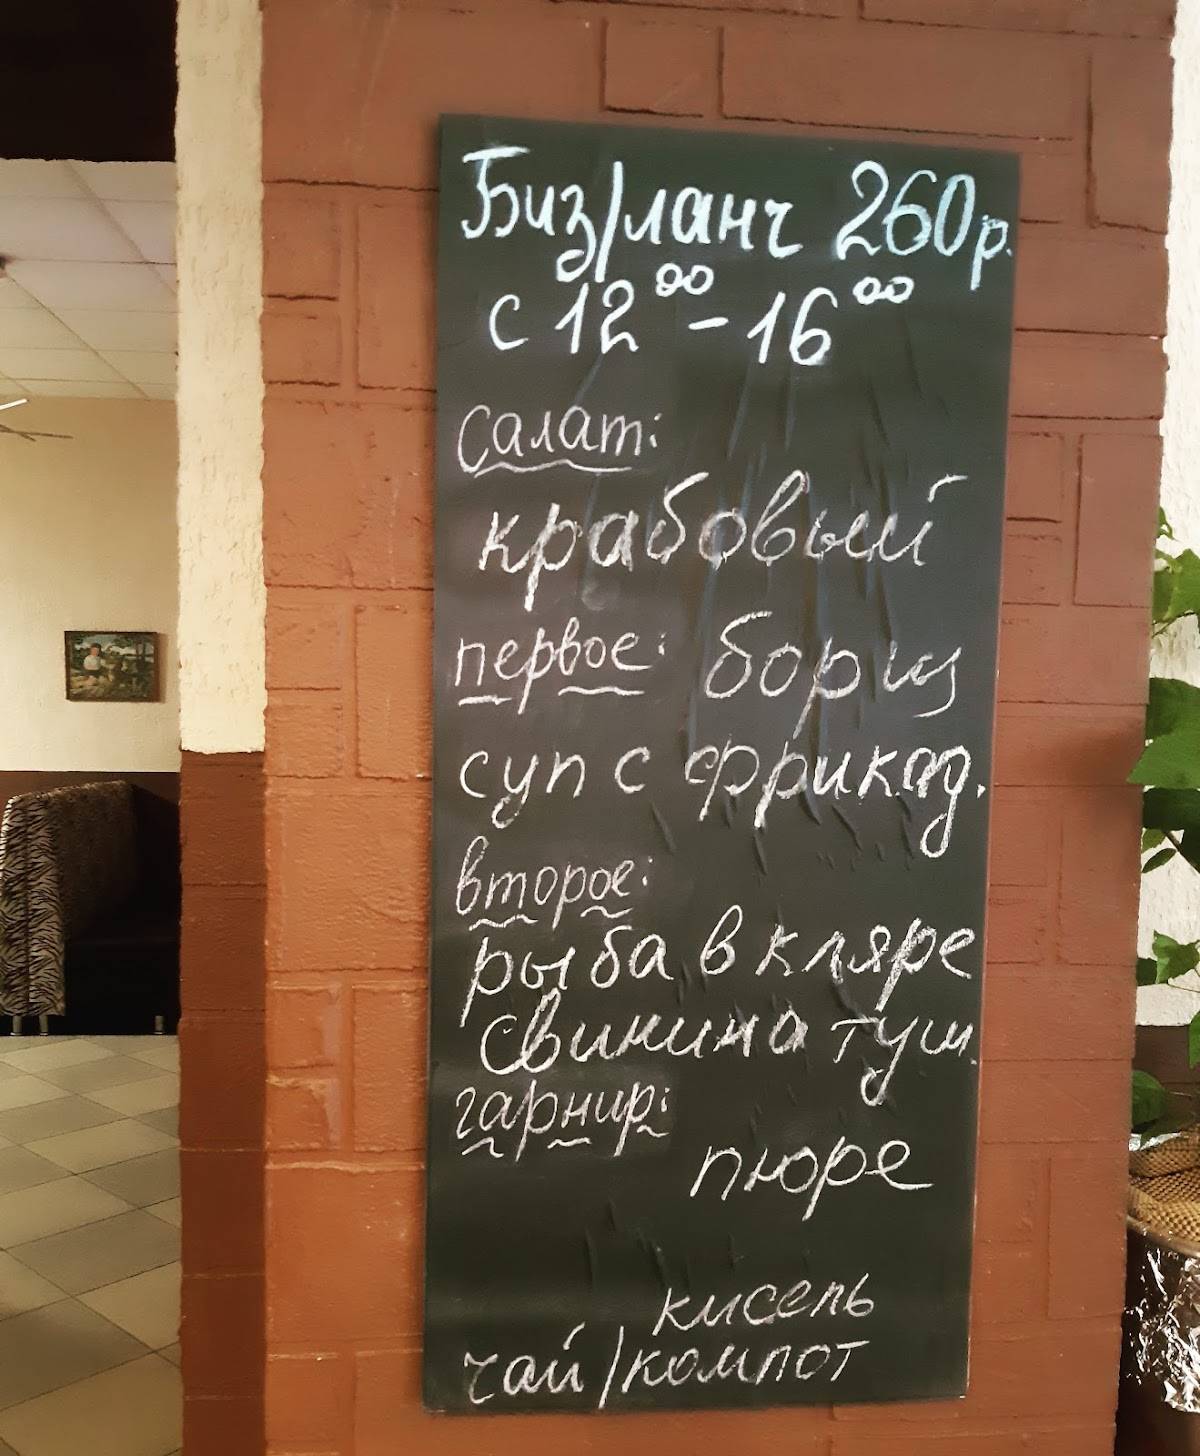 Биз/ланч 260р.
с 12 00 - 16 00
Салат:
крабовый
первое: борщ
суп с ффрикад.
второе:
рыба в кляре
свинина туш.
гарнир:
пюре
кисель
чай/компот